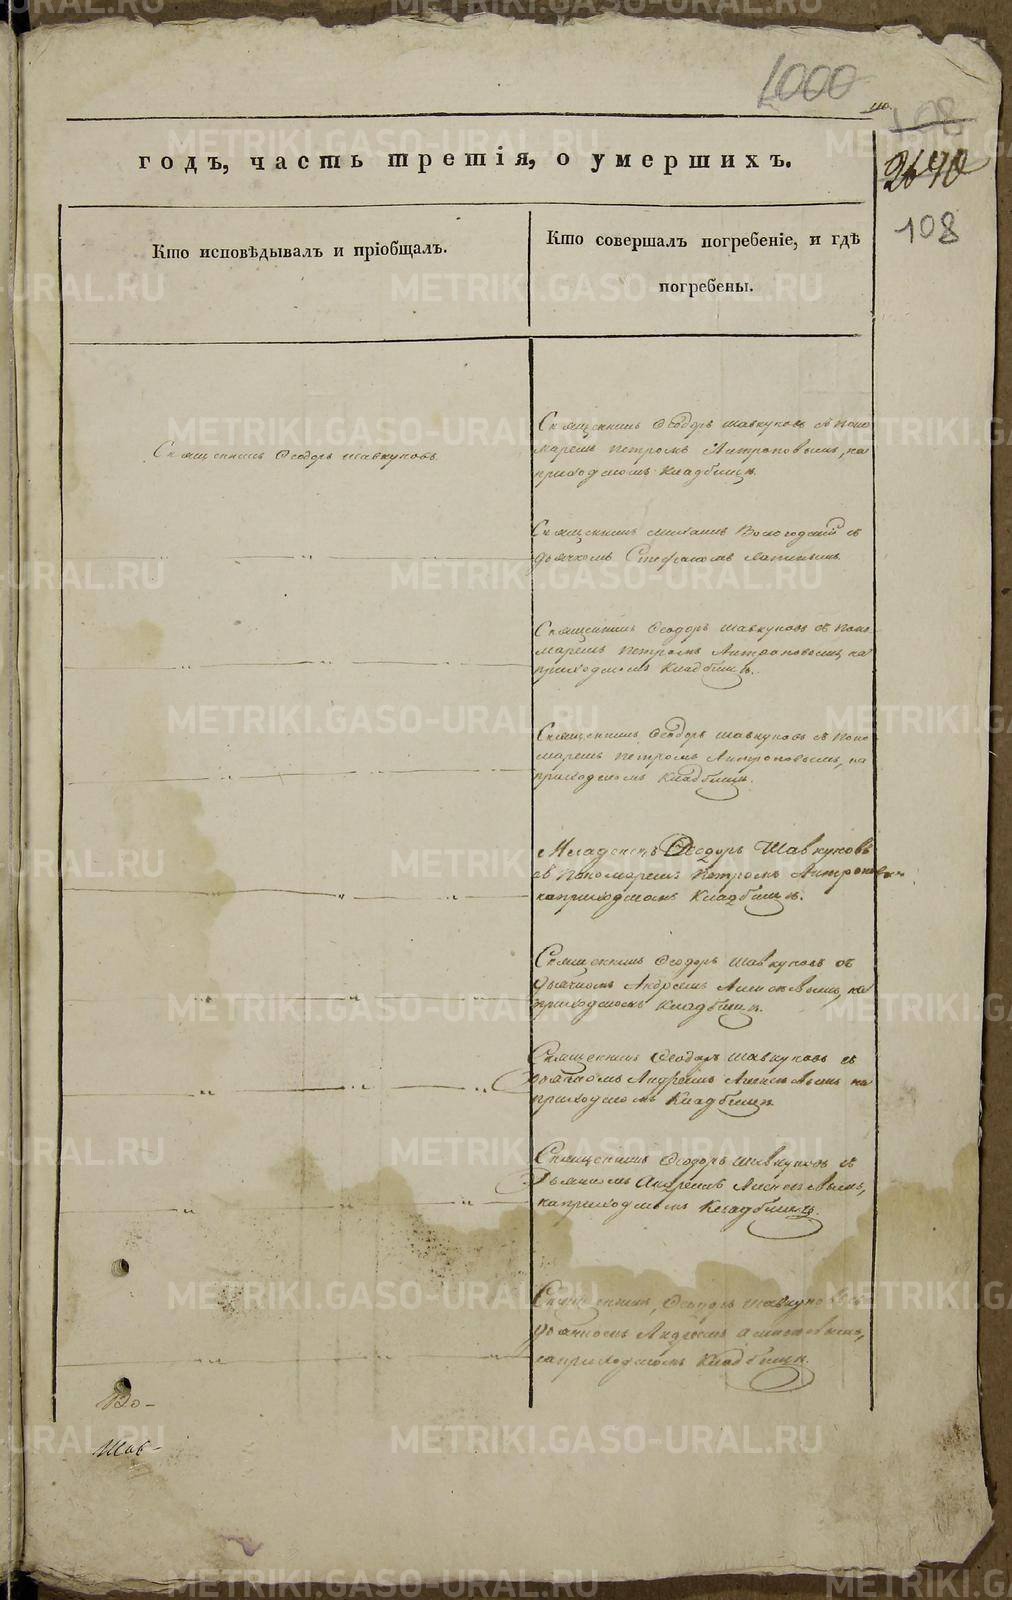 1000
110.
108
2640
108
годъ, часть третія, о умершихъ.
Кто исповѣдывалъ и пріобщалъ.
Кто совершалъ погребеніе, и гдѣ
погребены.
Священникъ Ѳеодоръ Шавкуновъ.
Священникъ Ѳеодоръ Шавкуновъ съ Поно
маремъ Петромъ Антроповымъ, на
приходскомъ Кладбищѣ.
Священникъ Михаилъ Вологодскій съ
дьячкомъ Стефаномъ
Священникъ Ѳеодоръ Шавкуновъ съ Поно
маремъ Петромъ Антроповымъ, на
приходскомъ Кладбищѣ.
Священникъ Ѳеодоръ Шавкуновъ съ Поно
маремъ Петромъ Антроповымъ, на
приходскомъ Кладбищѣ.
Ѳеодоръ Шавкуновъ
съ Пономаремъ Петромъ Антропов
на приходскомъ Кладбищѣ.
Священникъ Ѳеодоръ Шавкуновъ съ
дьячкомъ Андреемъ Алексѣевымъ, на
приходскомъ Кладбищѣ.
Священникъ Ѳеодоръ Шавкуновъ съ
дьячкомъ Андреемъ Алексѣевымъ на
приходскомъ Кладбищѣ.
Священникъ Ѳеодоръ Шавкуновъ съ
Дьячкомъ Андреемъ Алексѣевымъ,
на приходскомъ Кладбищѣ.
Священникъ Ѳеодоръ Шавкуновъ съ
дьячкомъ Андреемъ Алексѣевымъ,
на приходскомъ Кладбищѣ.
Во-
Шав-
METRIKI.GASO-URAL.RU